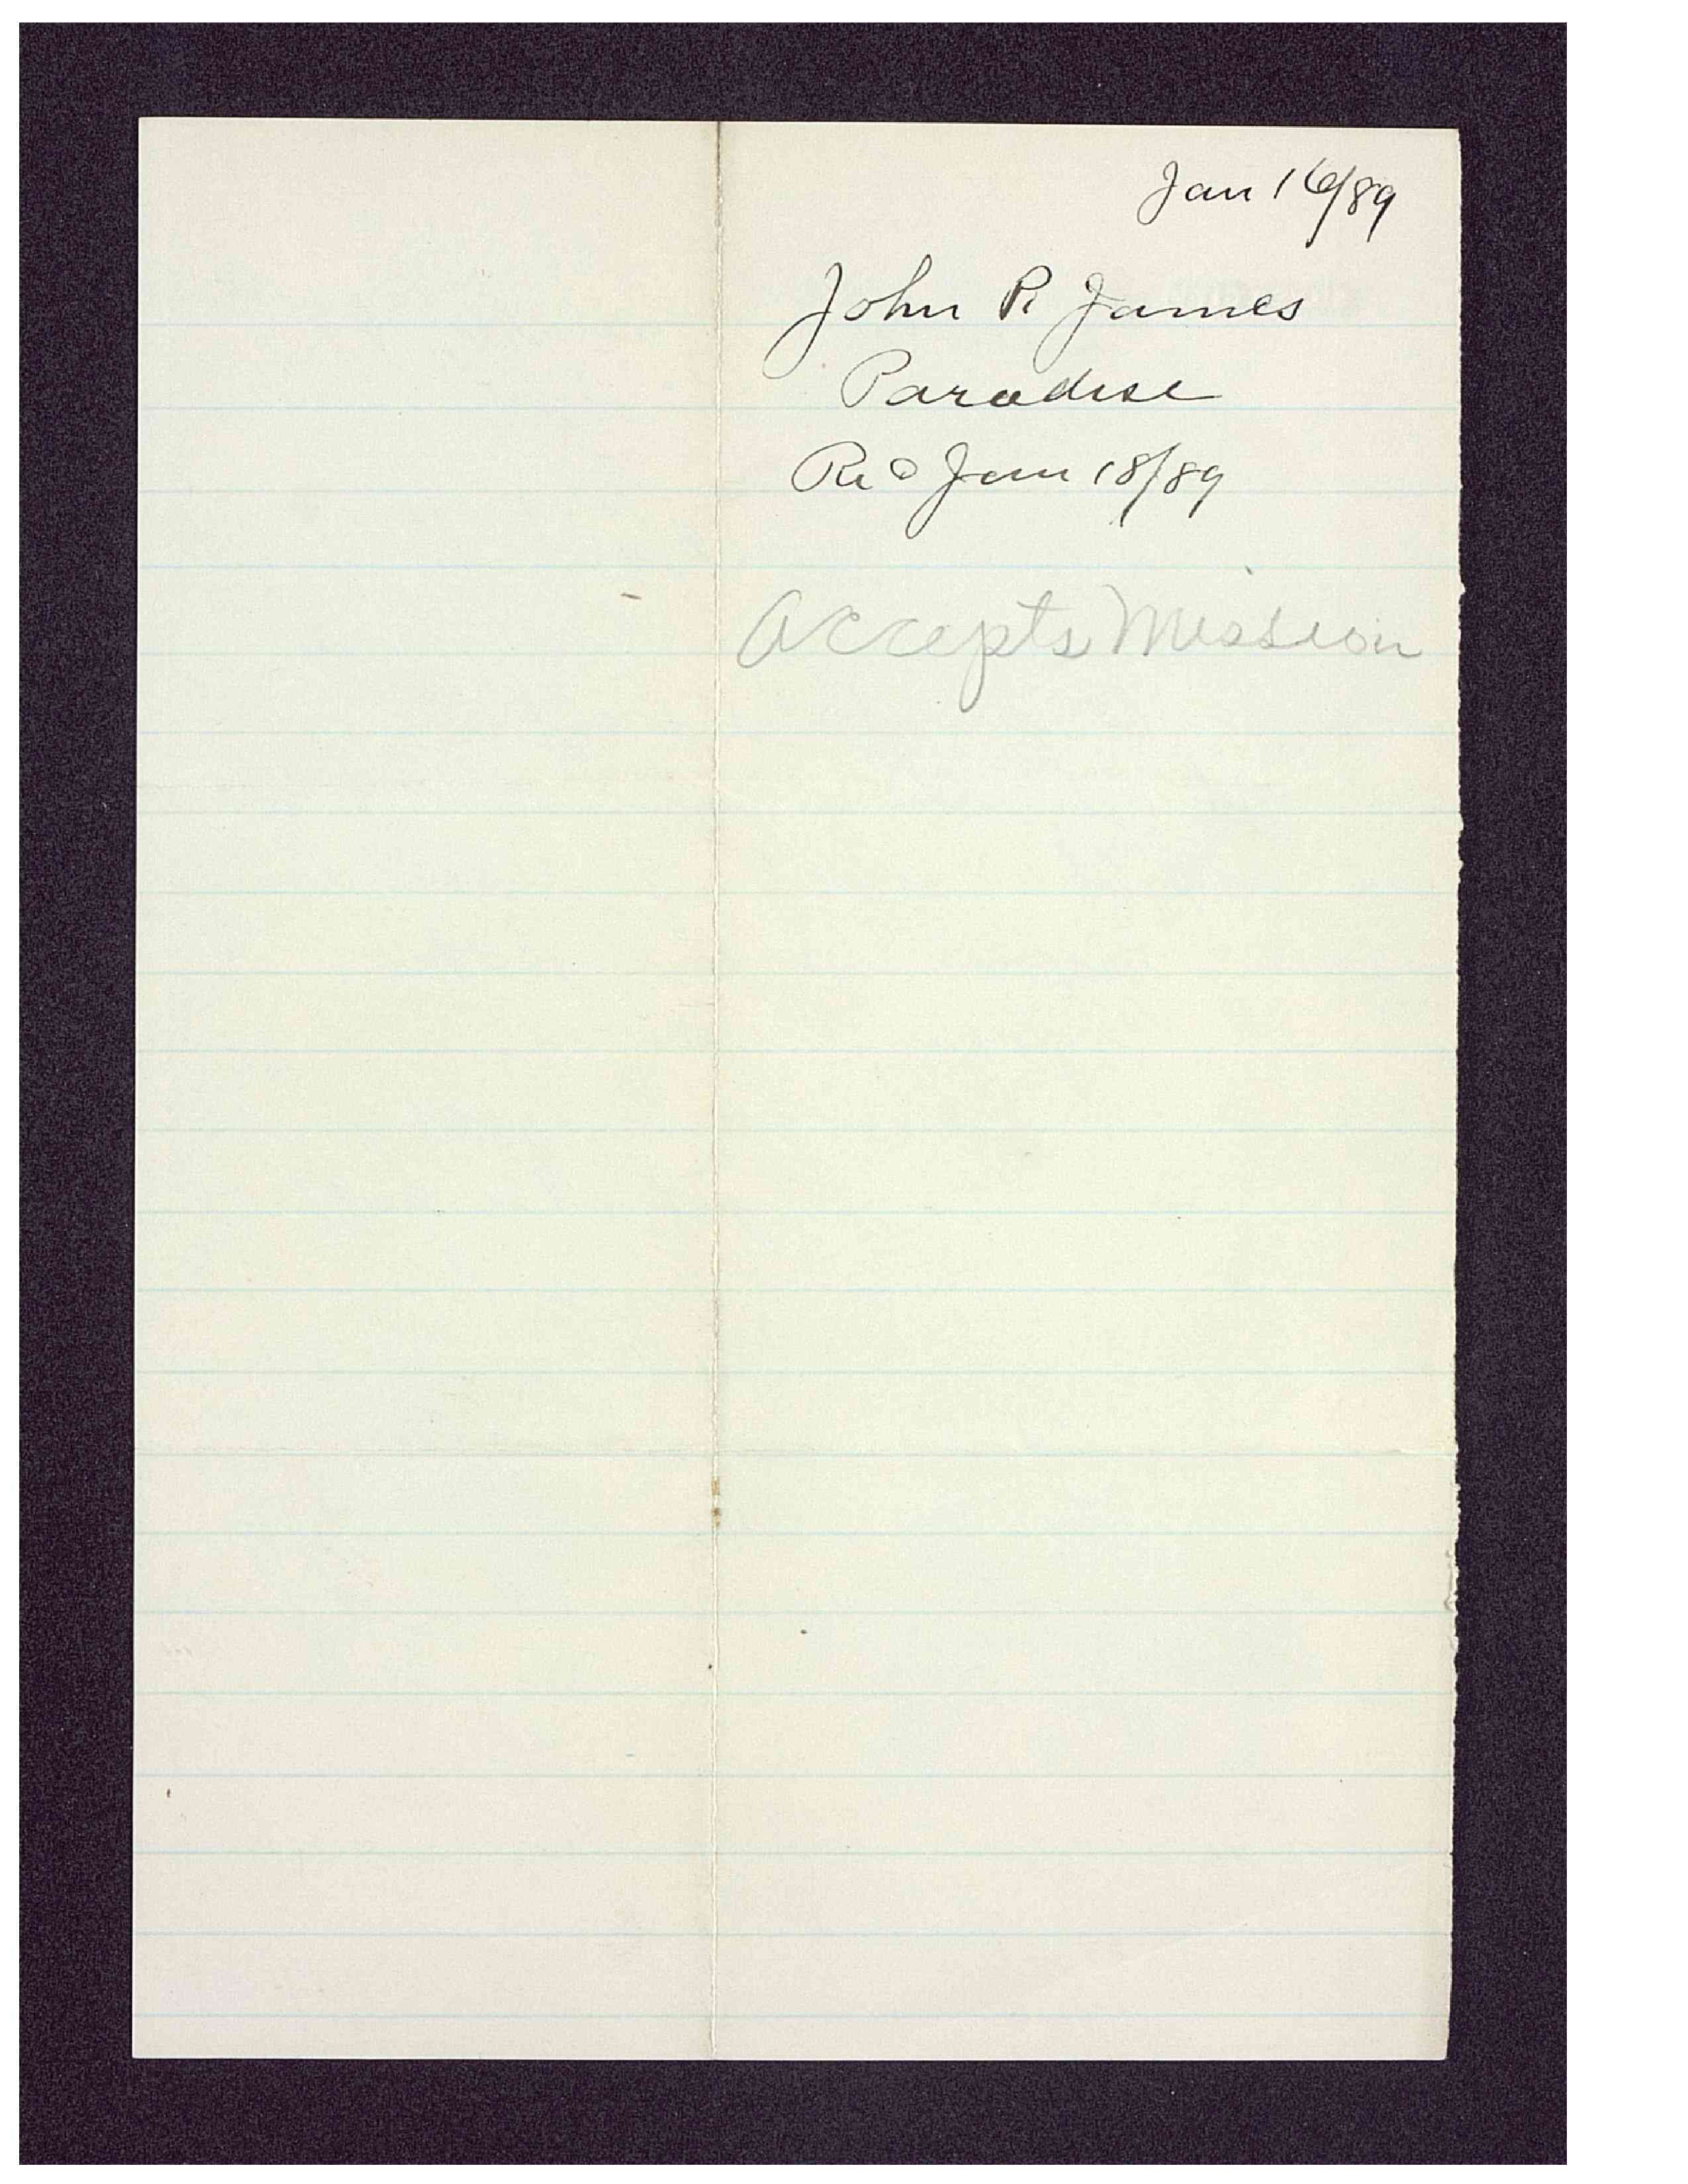 Jan 16/89
John R James
Paradise
Rec Jan 18/89
Accepts Mission